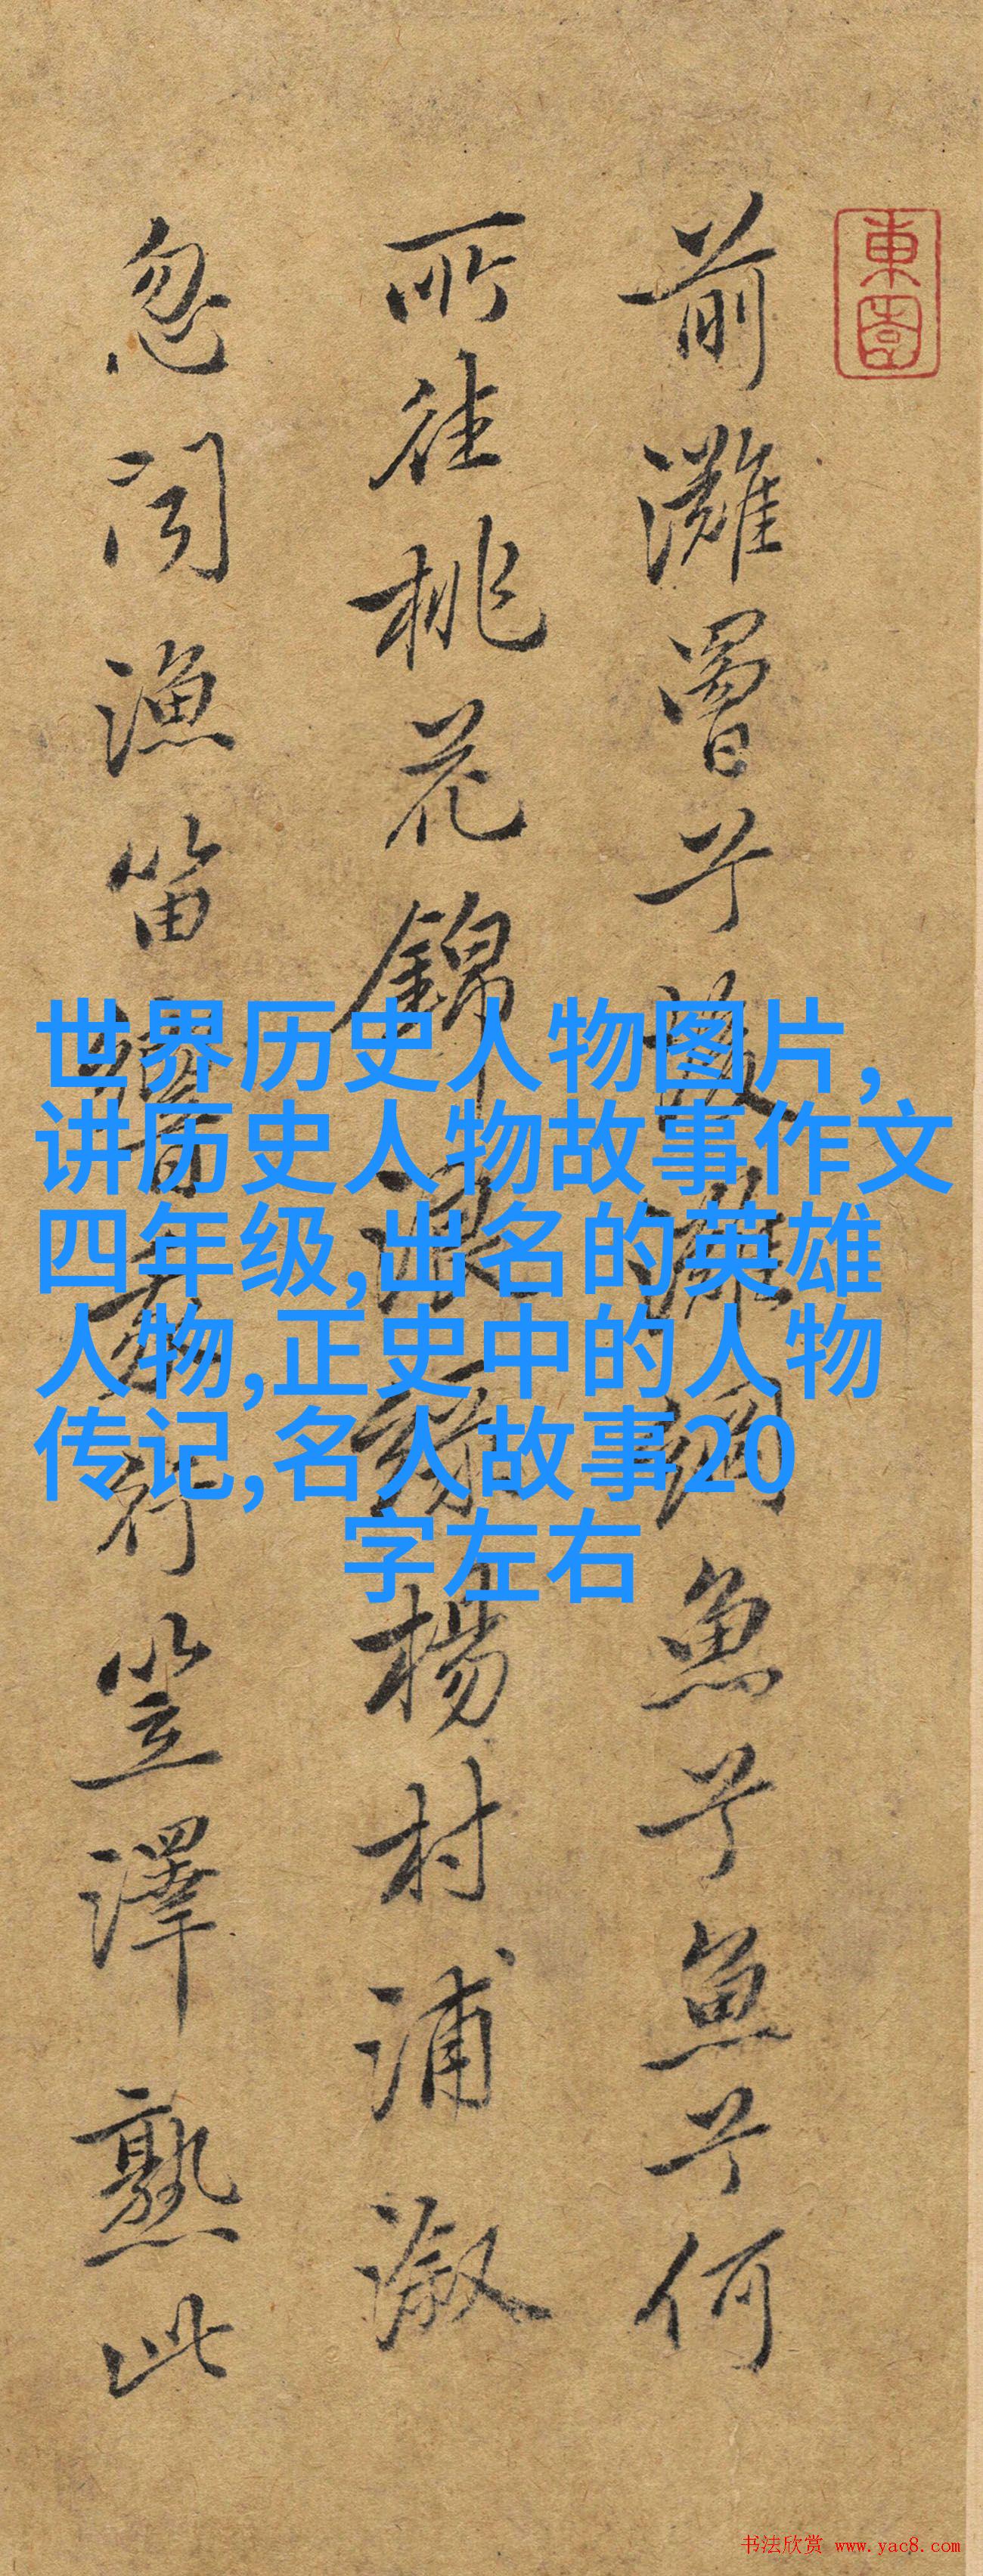 東園
前灘罾兮後灘網魚兮魚兮何
所往桃花錦浪綠楊村浦溆
忽闻漁笛響我行笠澤熟此
世界历史人物图片,
讲历史人物故事作文
四年级,出名的英雄
人物,正史中的人物
传记,名人故事20
字左右
书法欣赏 www.yac8.com